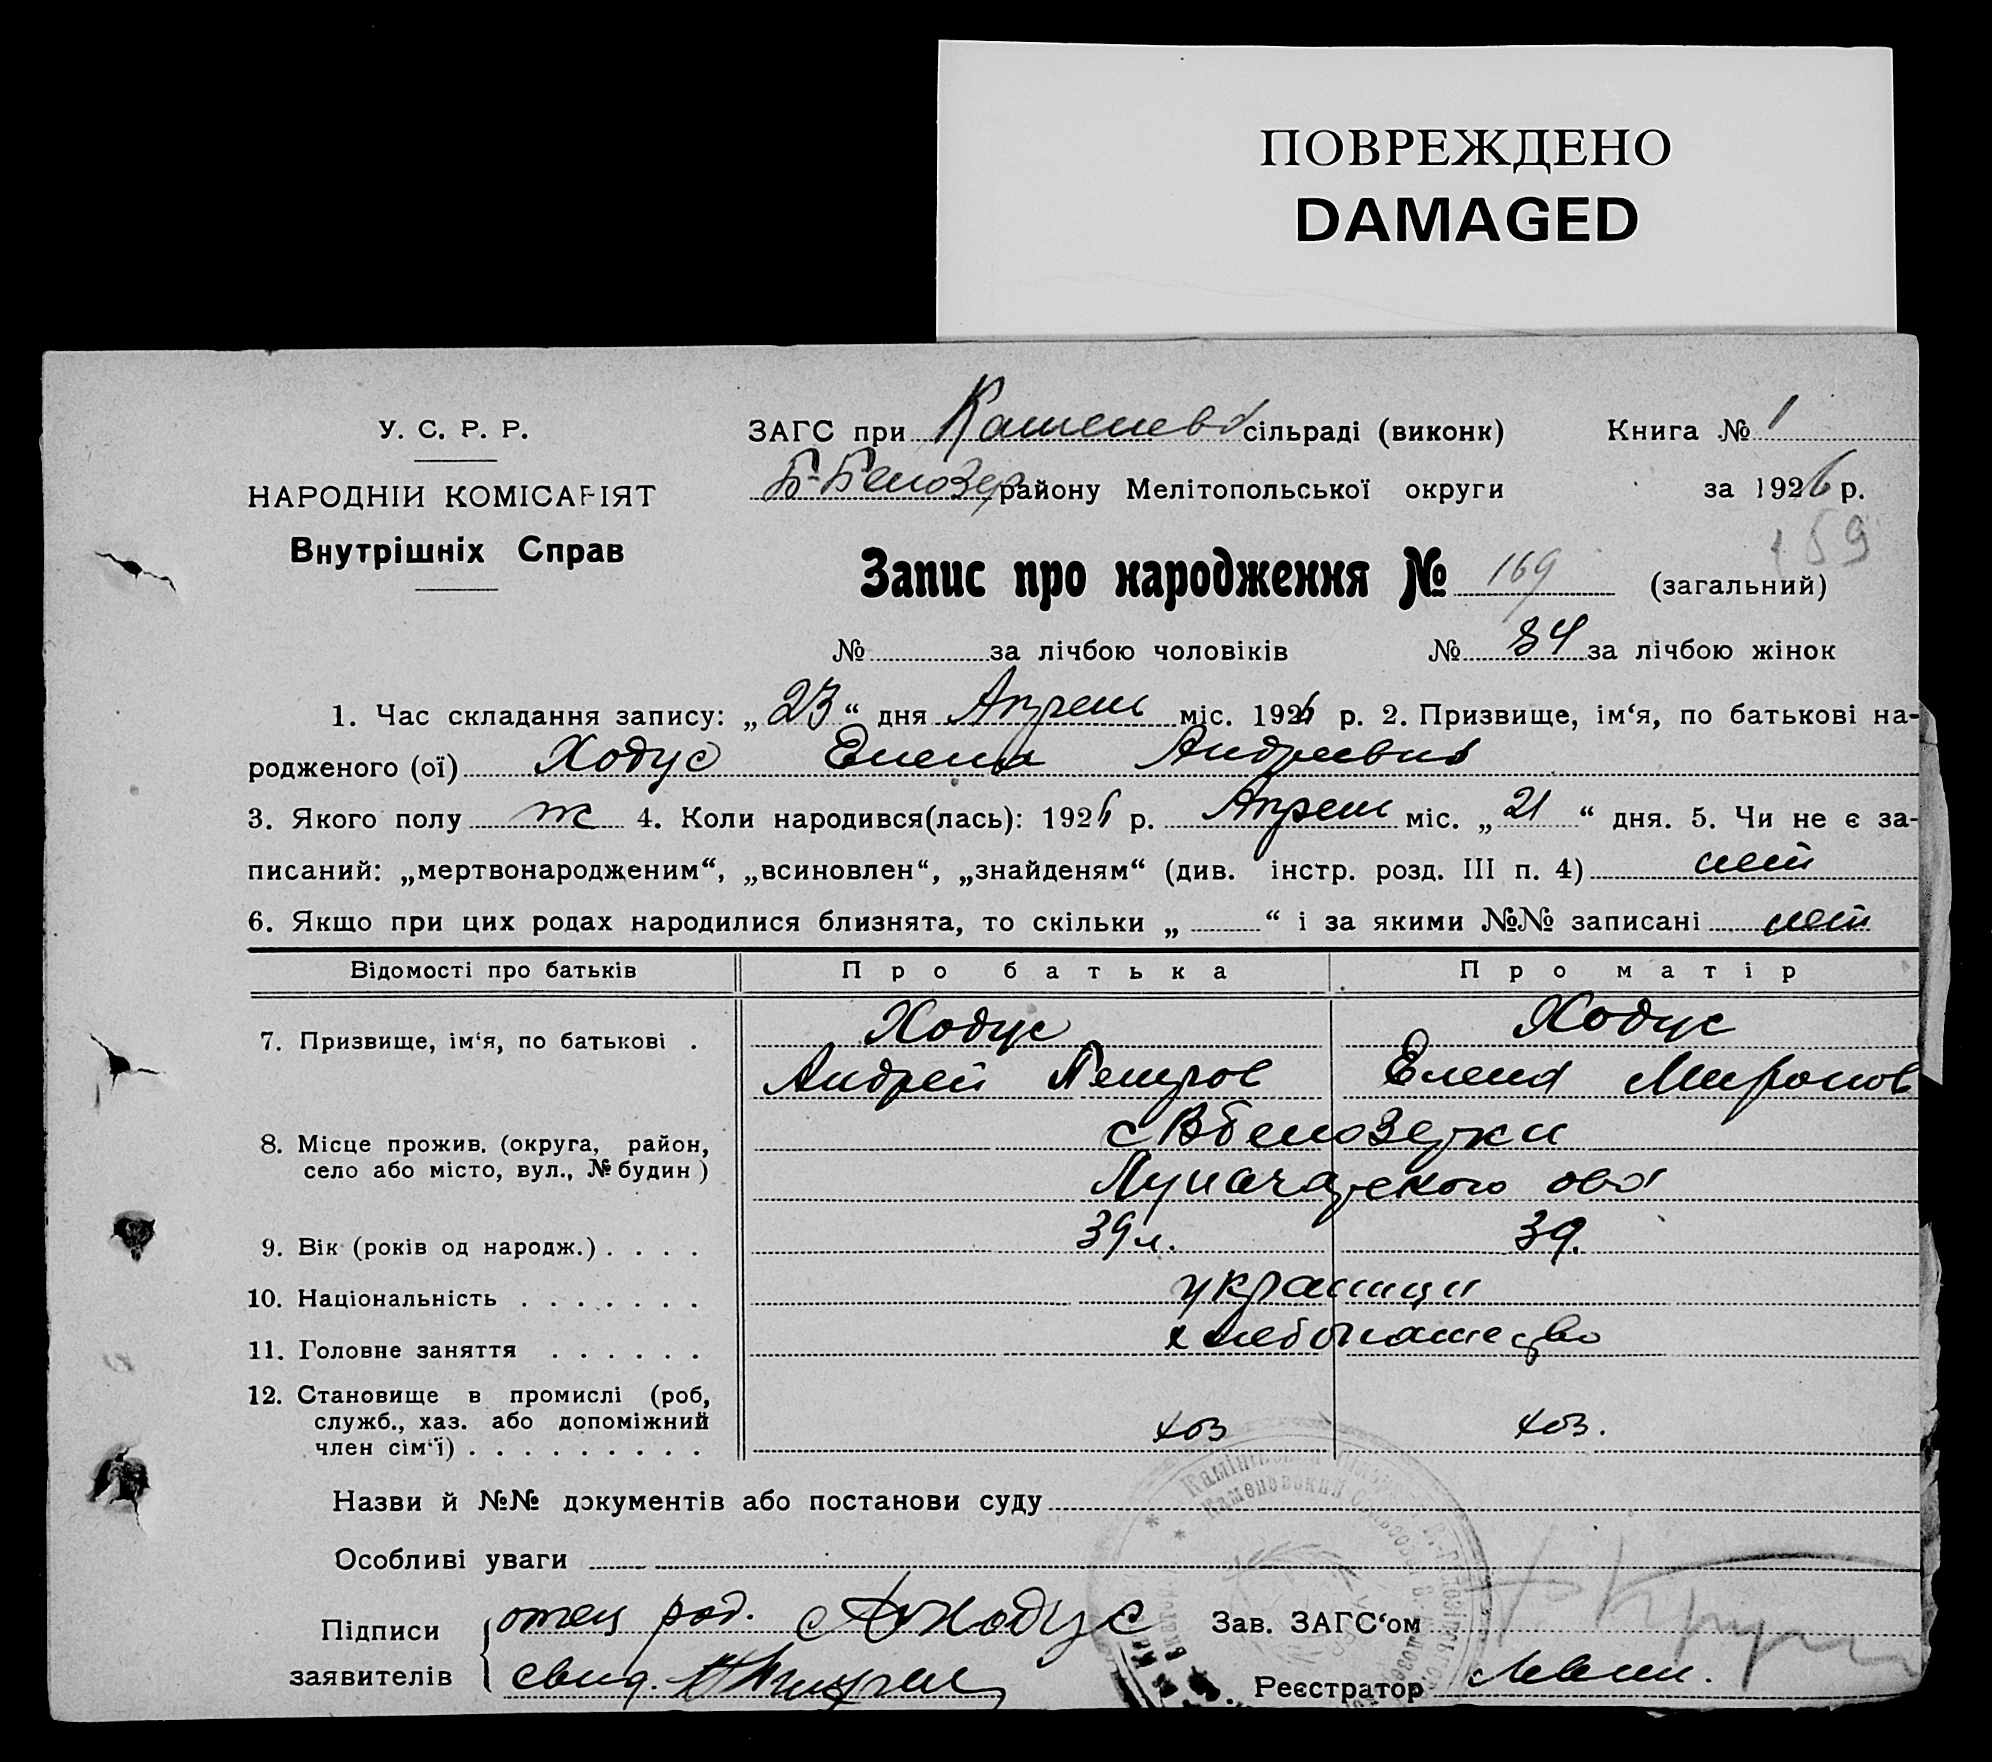 ПОВРЕЖДЕНО
DAMAGED
У. С. Р. Р.
ЗАГС при сільраді (виконк) Книга № 1
НАРОДНІЙ КОМІСАРІЯТ
Б-Белозер району Мелітопольської округи за 1926 р.
Внутрішніх Справ
159
Запис про народження № 169 (загальний)
№ за лічбою чоловіків № 84 за лічбою жінок
1. Час складання запису: „23“ дня Апрель міс. 1926 р. 2. Призвище, ім‘я, по батькові на-
родженого (ої) Ходус Елена Андреевна
3. Якого полу ж 4. Коли народився(лась): 1926 р. Апрель міс. „21“ дня. 5. Чи не є за-
писаний: „мертвонародженим“, „всиновлен“, „знайденям“ (див. інстр. розд. III п. 4) нет
6. Якщо при цих родах народилися близнята, то скільки „ “ і за якими №№ записані нет
Відомості про батьків Про батька Про матір
7. Призвище, ім‘я, по батькові . Ходус Ходус
Андрей Петров Елена Миронов
8. Місце прожив. (округа, район, село або місто, вул., № будин) с Вбелозерки
Луначарского
9. Вік (років од народж.) . . . . 39 л. 39.
10. Національність . . . . . . . украинци
11. Головне заняття . . . . . . хлебопашество
12. Становище в промислі (роб, служб., хаз. або допоміжний член сім‘ї) . . . . . . . . . хоз хоз.
Назви й №№ документів або постанови суду
Особливі уваги
Підписи заявителів отец род. Ходус
свид.
Зав. ЗАГС‘ом
Реєстратор